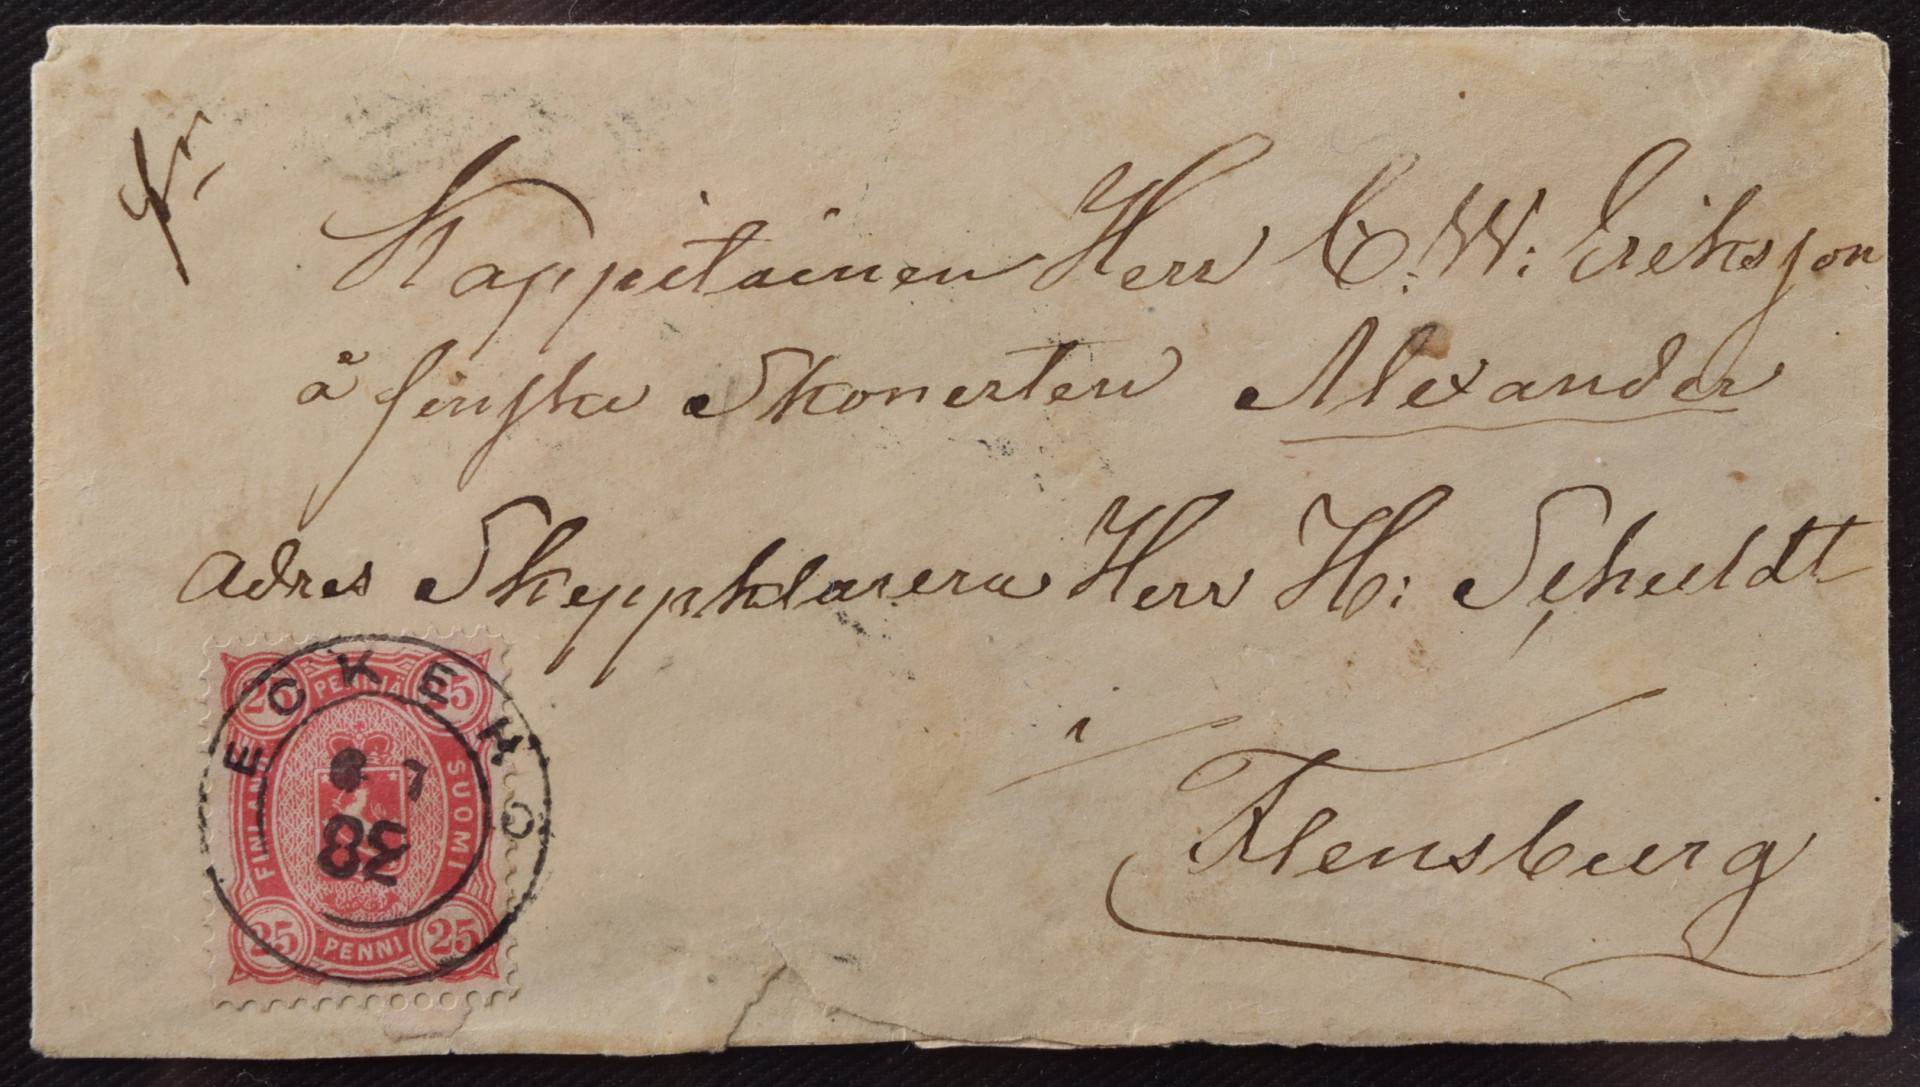 fr
Kappitainen Herr C. W: Eriksson
å finska Skonerten Alexander
adres Skeppklarera Herr H: Schuldt
i
Flensburg
ECKERÖ
25 PENNIÄ 25
FINLAND
SUOMI
25 PENNI 25